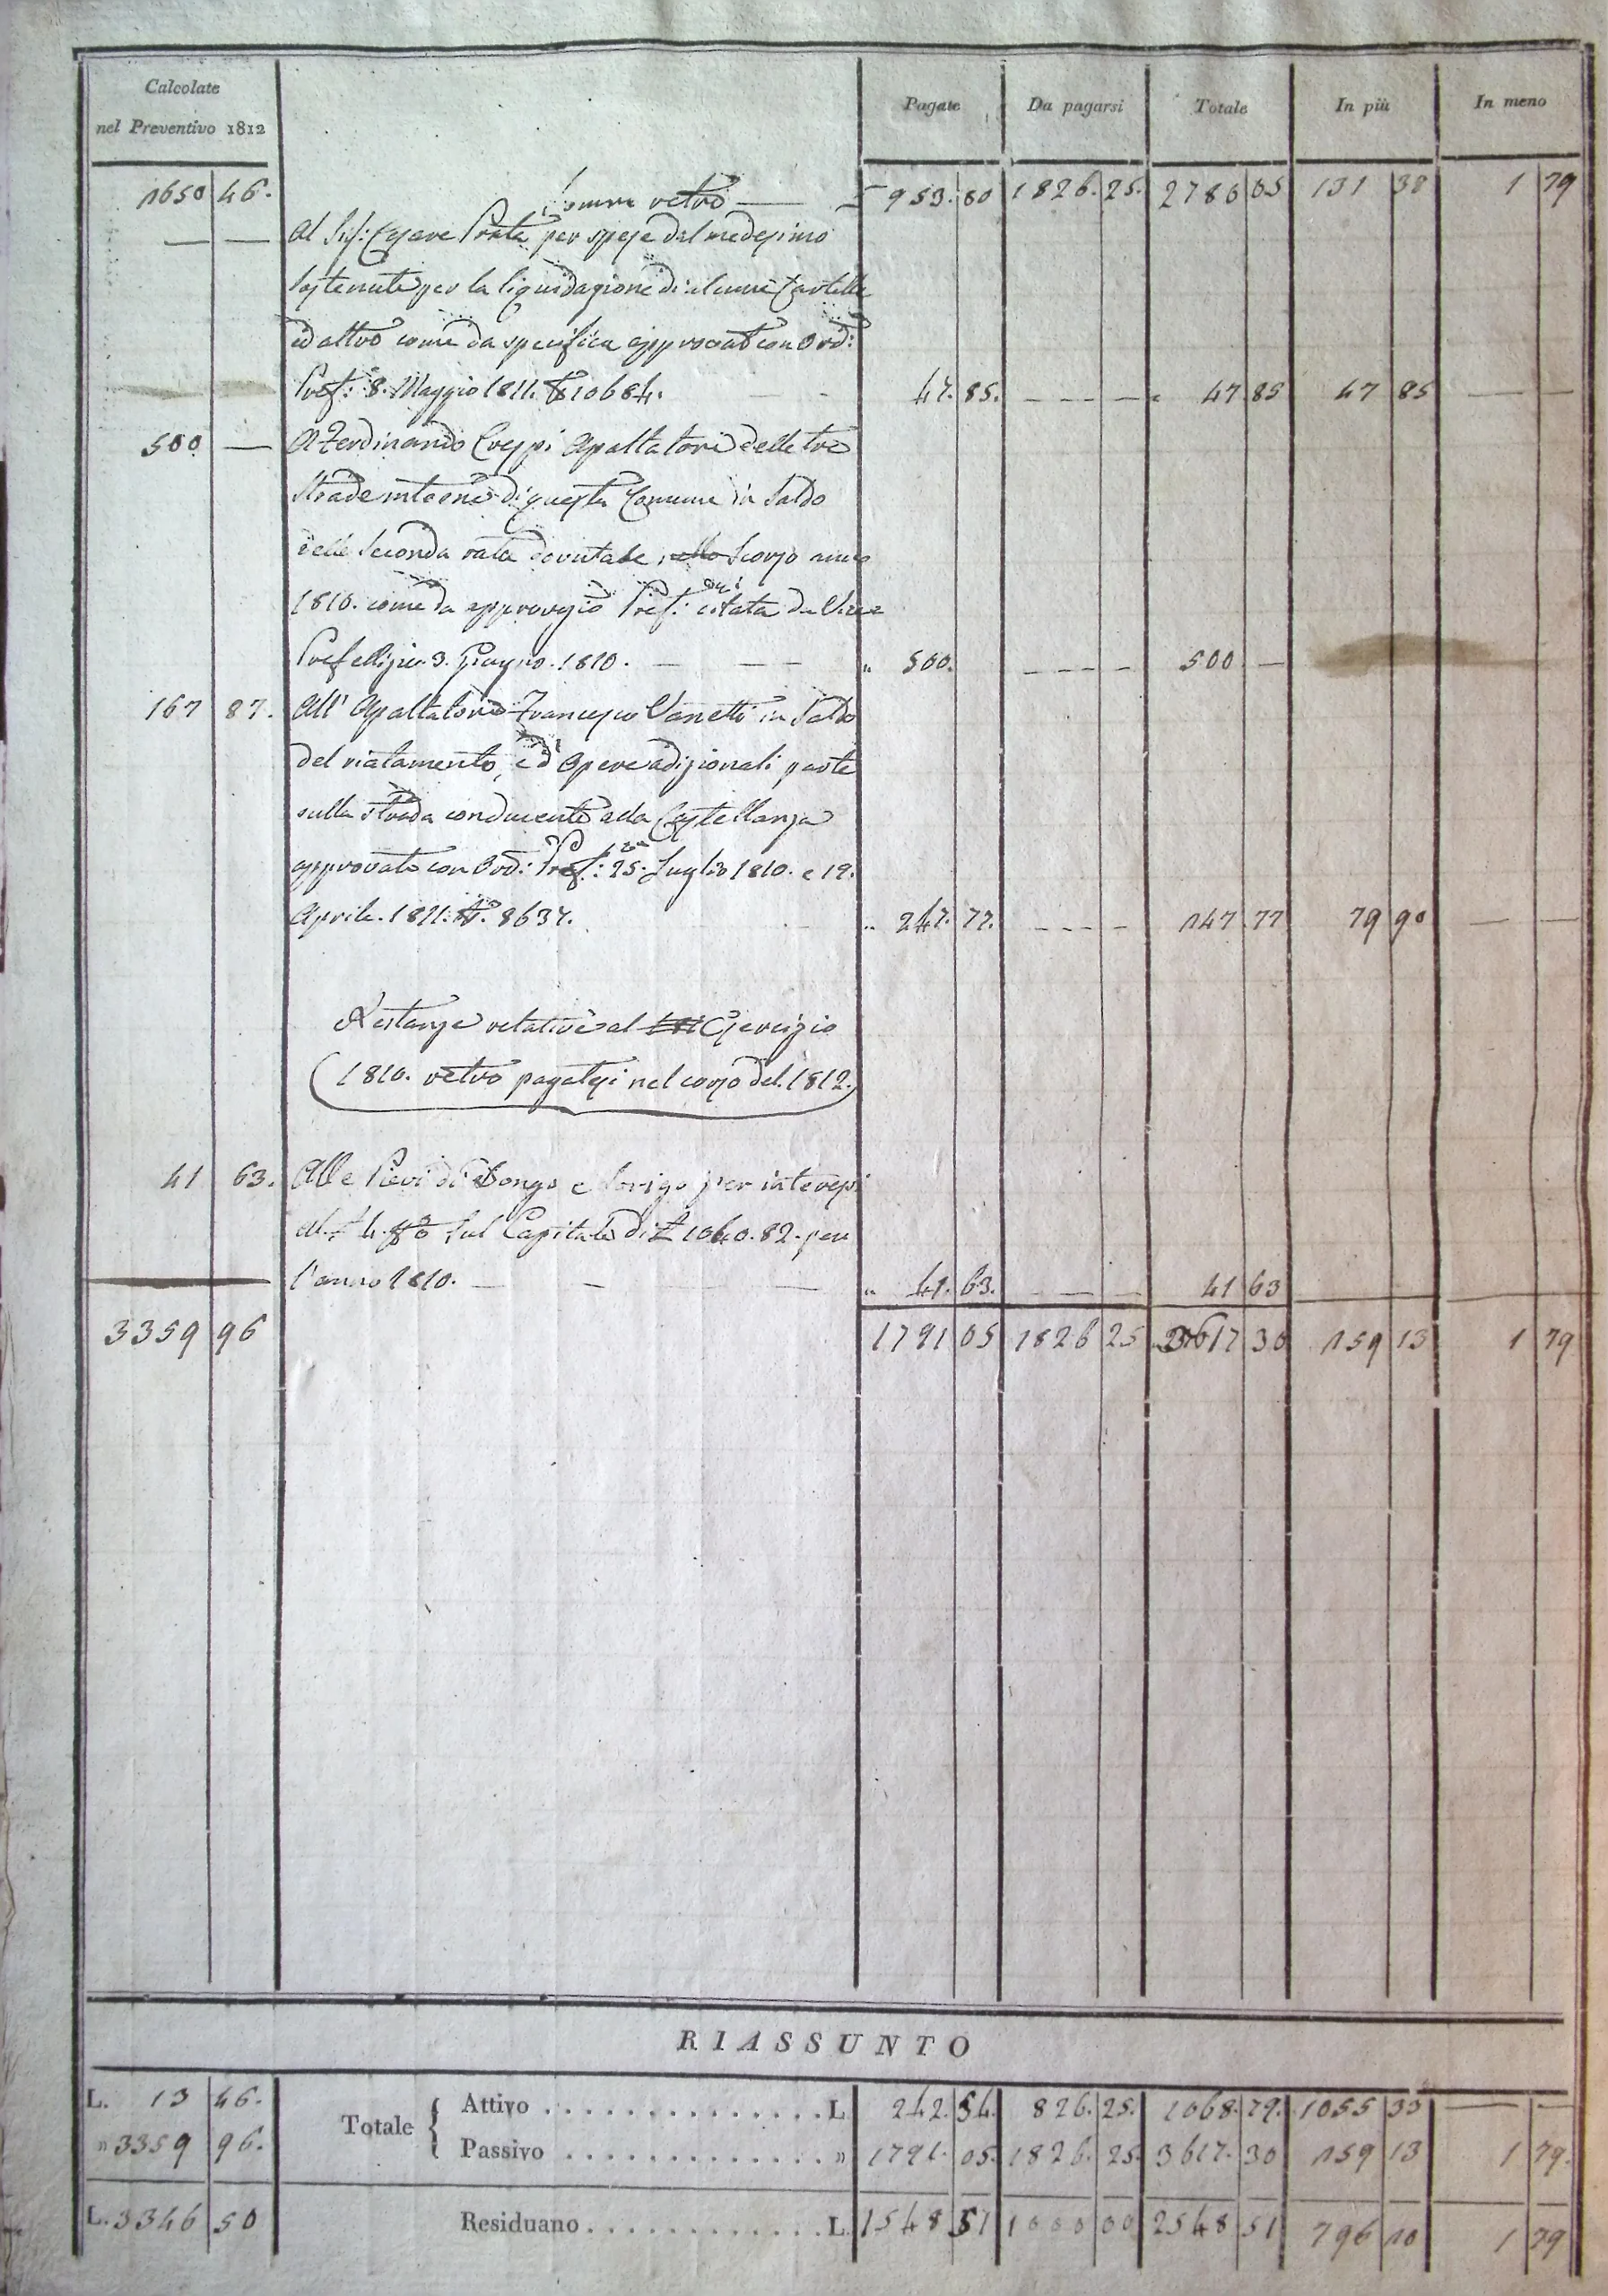 Calcolate
nel Preventivo 1812
Pagate Da pagarsi Totale In più In meno
1650 46. Somma retro — 953. 80 1826. 25. 2780 05 131 38 1 79
— — Al Sig: Cesare Prata per spese dal medesimo
sostenute per la liquidazione di alcune Cartelle
ed altro come da specifica approvata con Ord:
Pref: 8. Maggio 1811. N° 10684. 47. 85. — — — — 47 85 47 85 — —
500 — A Ferdinando Crespi Apaltatore delle tre
strade interne di questa Comune in Saldo
della Seconda rata dovutale nello Scorso anno
1810. come da approvazio Pref: citata da Vice
Prefettizia 3. Giugno. 1810. — — — „ 500. — — — — 500 —
167 87. All' Apaltatore Francesco Vanetti in Saldo
del riatamento, ed Opere adizionali fatte
sulla strada conducente alla Castellanza
approvato con Ord: Pref: 25. Luglio 1810. e 19.
Aprile. 1811. N°. 8637. „ 247. 77. — — — — 247 77 79 90 — —
Restanze relative al Esercizio
1810. retro pagatesi nel corso del. 1812.
41 63. Alle Pievi di Dongo e Sorigo per interessi
al 4. % sul Capitale di £ 1040. 82. per
l'anno 1810. — — — — „ 41. 63. — — — 41 63
3359 96 1791 05 1826 25 3617 30 159 13 1 79
RIASSUNTO
L. 13 46. Totale { Attivo . . . . . . . . . . . . . . L. 242. 54. 826. 25. 1068. 79. 1055 33 — —
» 3359 96. Passivo . . . . . . . . . . . . . » 1791. 05. 1826. 25. 3617. 30 159 13 1 79.
L. 3346 50 Residuano . . . . . . . . . . . . L. 1548 51 1000 00 2548 51 796 10 1 79